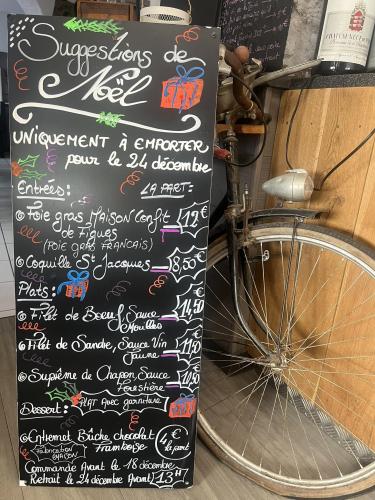 Suggestions de
Noël
UNIQUEMENT À EMPORTER
pour le 24 décembre
Entrées: LA PART:
Foie gras MAISON Confit 12€
de Figues
(FOIE GRAS FRANCAIS)
Coquille St Jacques 8,50€
Plats:
Filet de Boeuf, Sauce 14,50
Morilles
Filet de Sandre, Sauce Vin 11,50
Jaune
Suprême de Chapon, Sauce 10,50
Forestière
Dessert: PLAT Avec garniture
Entremet Bûche chocolat 4€
Framboise la part
Fabrication MACON
Commande Avant le 18 décembre
Retrait le 24 décembre Avant 13H